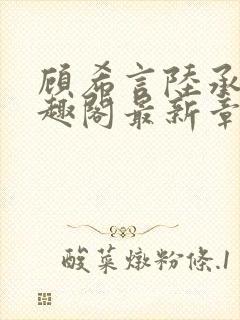 顾希言陸承
趣閣最新章
酸菜燉粉條.1